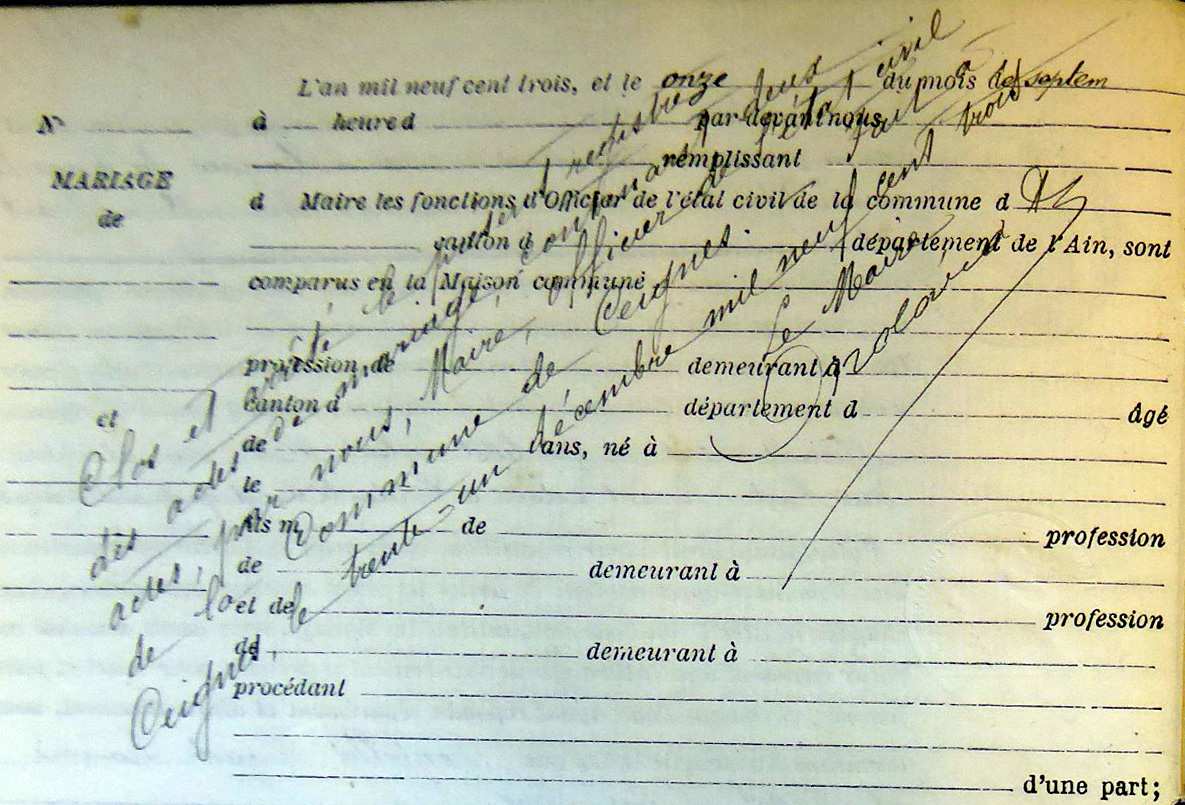 L'an mil neuf cent trois, et le onze du mois de septem
N°
à heure d par devant nous,
remplissant
MARIAGE
de
d Maire les fonctions d'Officier de l'état civil de la commune d
canton d département de l'Ain, sont
comparus en la Maison commune
profession de demeurant à
canton d département d âgé
et
de ans, né à
le
fils m de profession
de demeurant à
et de profession
d demeurant à
procédant
d'une part;
Clos et arrêté le présent registre
des actes de mariage, contenant deux
actes, par nous, Maire, officier de l'état civil
de la Commune de Ceignes.
Ceignes, le trente-un décembre mil neuf cent trois
Le Maire